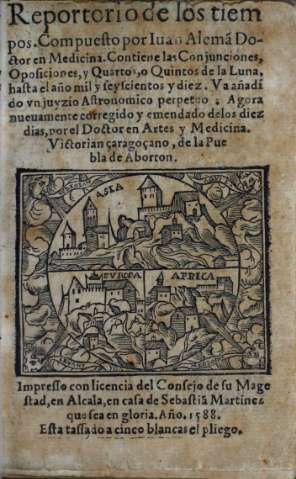 Reportorio de los tiem
pos. Compuesto por Iuan Alemã Do-
ctor en Medicina. Contiene las Conjunciones,
Oposiciones, y Quartos, o Quintos de la Luna,
hasta el año mil y seyscientos y diez. Va añadi
do vn juyzio Astronomico perpetuo: Agora
nueuamente corregido y emendado de los diez
dias, por el Doctor en Artes y Medicina.
Victorian çaragoçano, de la Pue
bla de Aborton.
ASIA
EVROPA
AFRICA
Impresso con licencia del Consejo de su Mage
stad, en Alcala, en casa de Sebastiã Martinez
que sea en gloria. Año. 1588.
Esta tassado a cinco blancas el pliego.